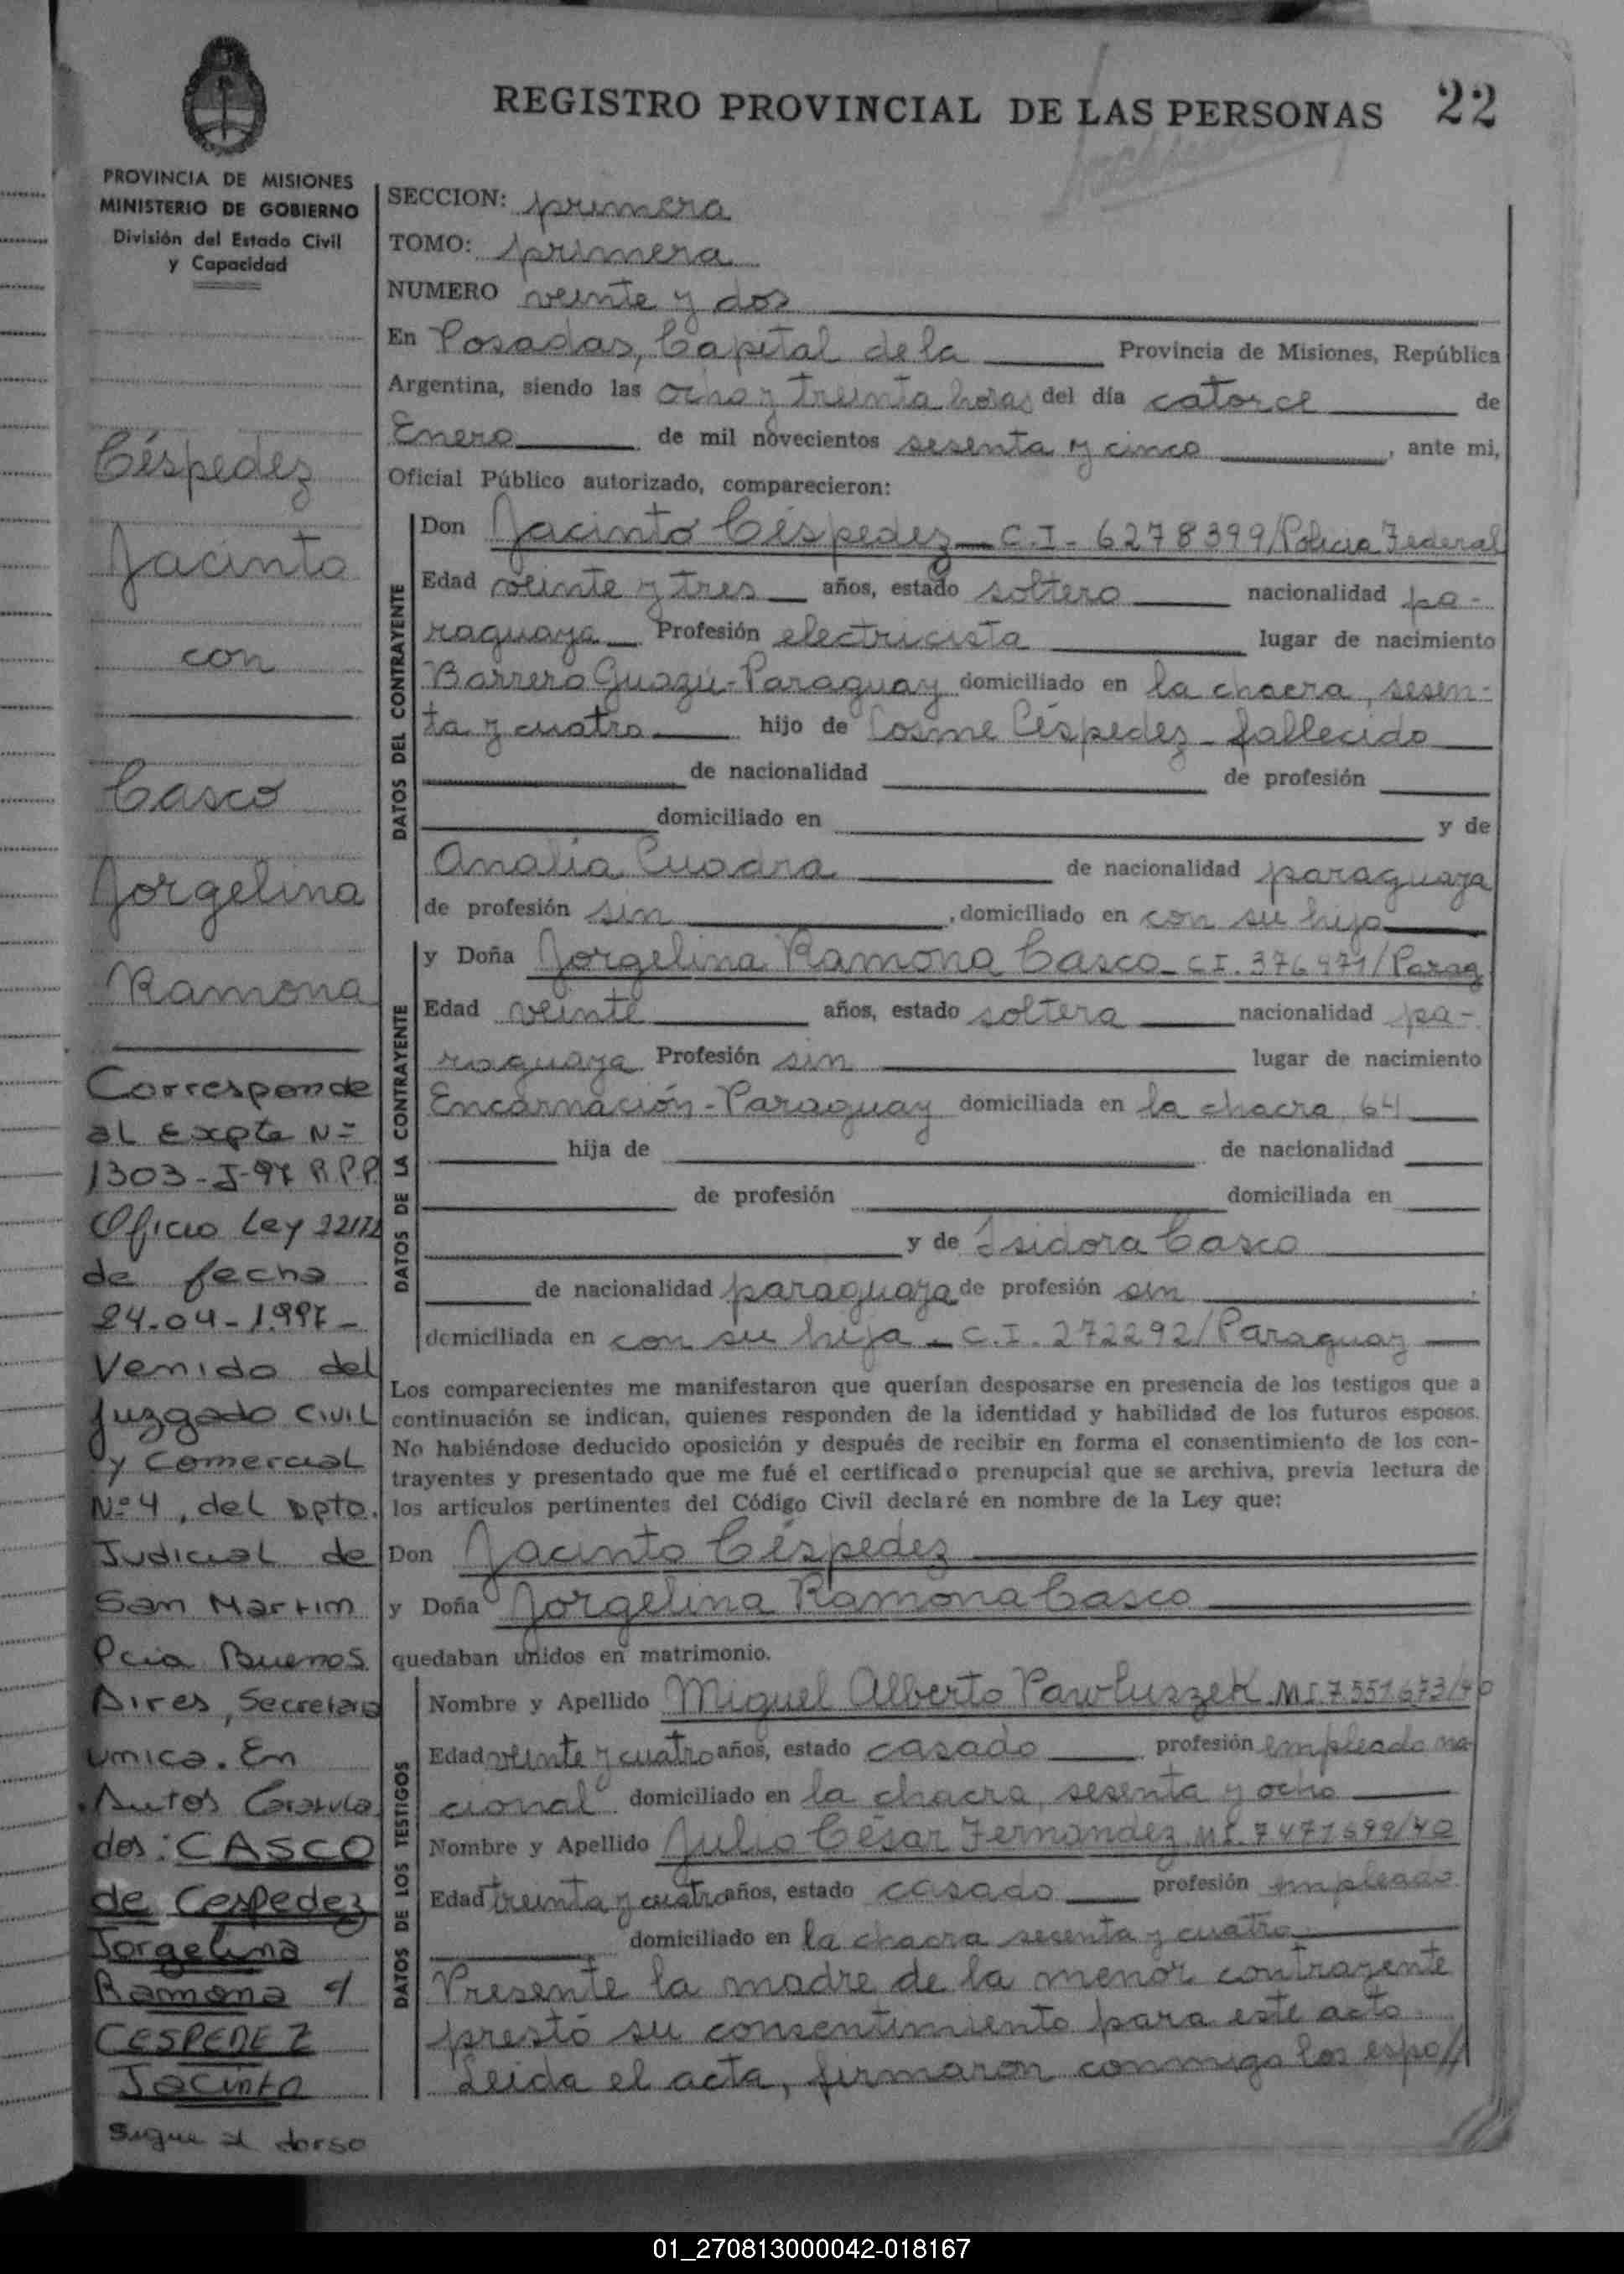 REGISTRO PROVINCIAL DE LAS PERSONAS 22
PROVINCIA DE MISIONES
MINISTERIO DE GOBIERNO
División del Estado Civil
y Capacidad
Céspedez
Jacinto
con
Casco
Jorgelina
Ramona
Corresponde
al Expte Nº
1303-J-97 R.P.P.
Oficio Ley 22172
de fecha
24-04-1.997-
Venido del
Juzgado Civil
y Comercial
Nº 4, del Dpto.
Judicial de
San Martin
Pcia Buenos
Aires, Secretaria
unica. En
Autos Caratula
dos: CASCO
de Cespedez
Jorgelina
Ramona y
CESPEDEZ
Jacinto
Sigue al dorso
SECCION: primera
TOMO: primera
NUMERO veinte y dos
En Posadas, Capital de la Provincia de Misiones, República
Argentina, siendo las ocho y treinta horas del día catorce de
Enero de mil novecientos sesenta y cinco, ante mi,
Oficial Público autorizado, comparecieron:
DATOS DEL CONTRAYENTE
Don Jacinto Céspedez - C.I - 6278399/Policia Federal
Edad veinte y tres años, estado soltero nacionalidad pa-
raguaya Profesión electricista lugar de nacimiento
Barrero Guazú-Paraguay domiciliado en la chacra, sesen-
ta y cuatro hijo de Cosme Céspedez - fallecido
de nacionalidad de profesión
domiciliado en y de
Analia Cuadra de nacionalidad paraguaya
de profesión sin, domiciliado en con su hijo
DATOS DE LA CONTRAYENTE
y Doña Jorgelina Ramona Casco - C.I. 376471/Parag
Edad veinte años, estado soltera nacionalidad pa-
raguaya Profesión sin lugar de nacimiento
Encarnación-Paraguay domiciliada en la chacra 64
hija de de nacionalidad
de profesión domiciliada en
y de Isidora Casco
de nacionalidad paraguaya de profesión sin
domiciliada en con su hija - C.I. 272292/Paraguay
Los comparecientes me manifestaron que querían desposarse en presencia de los testigos que a
continuación se indican, quienes responden de la identidad y habilidad de los futuros esposos.
No habiéndose deducido oposición y después de recibir en forma el consentimiento de los con-
trayentes y presentado que me fué el certificado prenupcial que se archiva, previa lectura de
los artículos pertinentes del Código Civil declaré en nombre de la Ley que:
Don Jacinto Céspedez
y Doña Jorgelina Ramona Casco
quedaban unidos en matrimonio.
DATOS DE LOS TESTIGOS
Nombre y Apellido Miguel Alberto Pawluszek M.I. 7551673/40
Edad veinte y cuatro años, estado casado profesión empleado na-
cional domiciliado en la chacra, sesenta y ocho
Nombre y Apellido Julio César Fernandez M.I. 7471699/40
Edad treinta y cuatro años, estado casado profesión empleado
domiciliado en la chacra sesenta y cuatro
Presente la madre de la menor contrayente
prestó su consentimiento para este acto.
Leida el acta, firmaron conmigo los espo//
01_270813000042-018167